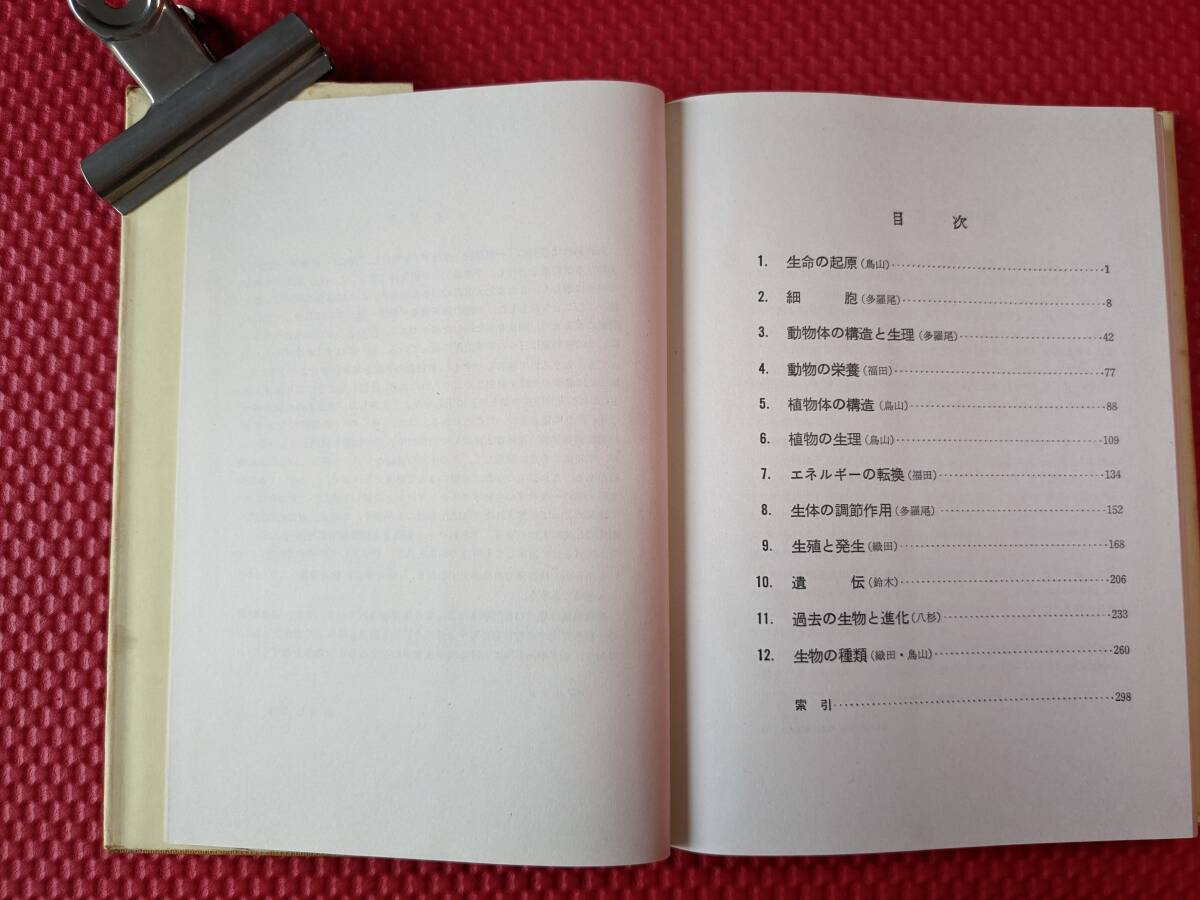 目 次
1. 生命の起原(鳥山)……1
2. 細 胞(多羅尾)……8
3. 動物体の構造と生理(多羅尾)……42
4. 動物の栄養(福田)……77
5. 植物体の構造(鳥山)……88
6. 植物の生理(鳥山)……109
7. エネルギーの転換(福田)……134
8. 生体の調節作用(多羅尾)……152
9. 生殖と発生(織田)……168
10. 遺 伝(鈴木)……206
11. 過去の生物と進化(八杉)……233
12. 生物の種類(織田・鳥山)……260
索 引……298